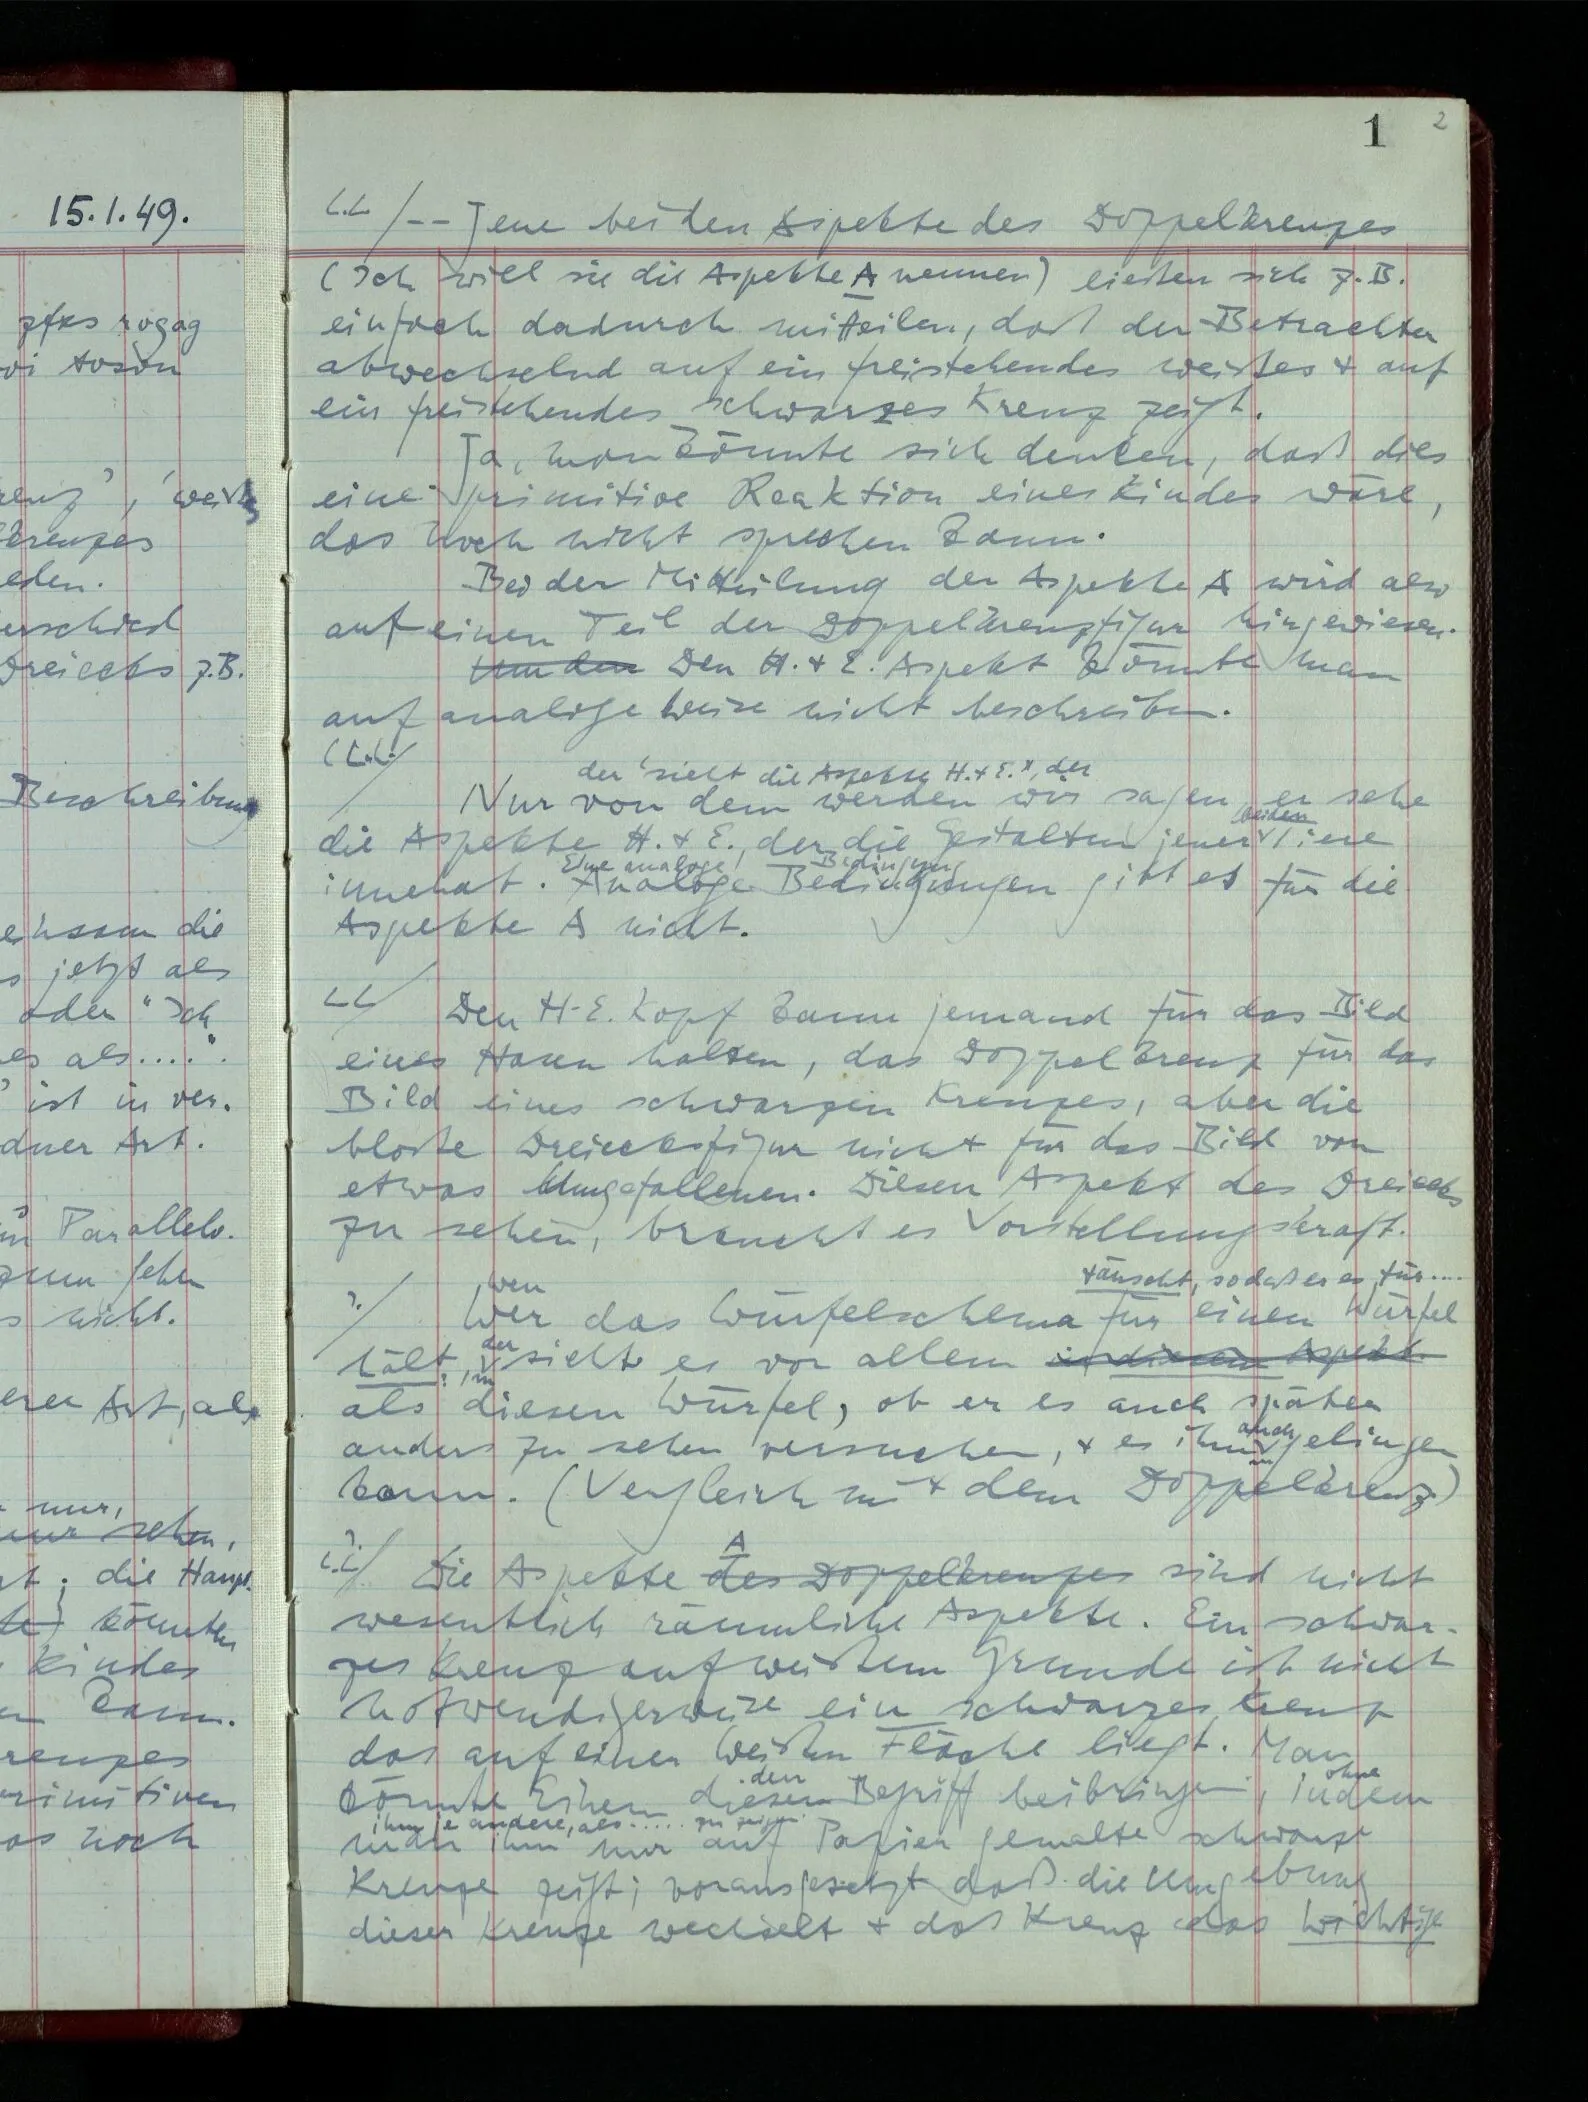 15.1.49.
pfks rogag
oi
renz', 'weiß
krenzes
eden.
erschied
Dreiecks z.B.
Beschreibung
ehsam die
s jetzt als
oder "Ich
es als....".
ist in ver-
dner Art.
Parallelo-
zum sehen
s nicht.
erer Art, als
nur,
nur sehen,
t; die Haupt-
te) könnten
Kindes
n kann.
reuzes
rimitiven
as noch
1 2
/-- Jene beiden Aspekte des Doppelkreuzes
(Ich will sie die Aspekte A nennen) ließen sich z.B.
einfach dadurch mitteilen, daß der Betrachter
abwechselnd auf ein freistehendes weißes & auf
ein freistehendes schwarzes Kreuz zeigt.
Ja, man könnte sich denken, daß dies
eine primitive Reaktion eines Kindes wäre,
das noch nicht sprechen kann.
Bei der Mitteilung der Aspekte A wird also
auf einen Teil der Doppelkreuzfigur hingewiesen.
Um den Den H. & E. Aspekt könnte man
auf analoge Weise nicht beschreiben.
der 'sieht die Aspekte H. & E.', der
Nur von dem werden wir sagen, er sehe
beiden
die Aspekte H. & E., der die Gestalten jener Tiere
Eine analoge Bedingung
innehat. Analoge Bedingungen gibt es für die
Aspekte A nicht.
Den H-E. Kopf kann jemand für das Bild
eines Hasen halten, das Doppelkreuz für das
Bild eines schwarzen Kreuzes, aber die
bloße Dreiecksfigur nicht für das Bild von
etwas Umgefallenem. Diesen Aspekt des Dreiecks
zu sehen, braucht es Vorstellungskraft.
, wen täuscht, sodaß er es für....
?/ Wer das Würfelschema für einen Würfel
der
hält, sieht es vor allem in diesem Aspekt
als diesen Würfel, ob er es auch später
auch
anders zu sehen versuchen, & es ihm gelingen
kann. (Vergleich mit dem Doppelkreuz)
A
Die Aspekte des Doppelkreuzes sind nicht
wesentlich räumliche Aspekte. Ein schwar-
zes Kreuz auf weißem Grunde ist nicht
notwendigerweise ein schwarzes Kreuz
das auf einer weißen Fläche liegt. Man
den ohne
könnte Einem diesen Begriff beibringen, indem
ihm je andere, als..... zu zeigen
man ihm nur auf Papier gemalte schwarze
Kreuze zeigt; vorausgesetzt daß die Umgebung
dieser Kreuze wechselt & daß Kreuz das wichtige